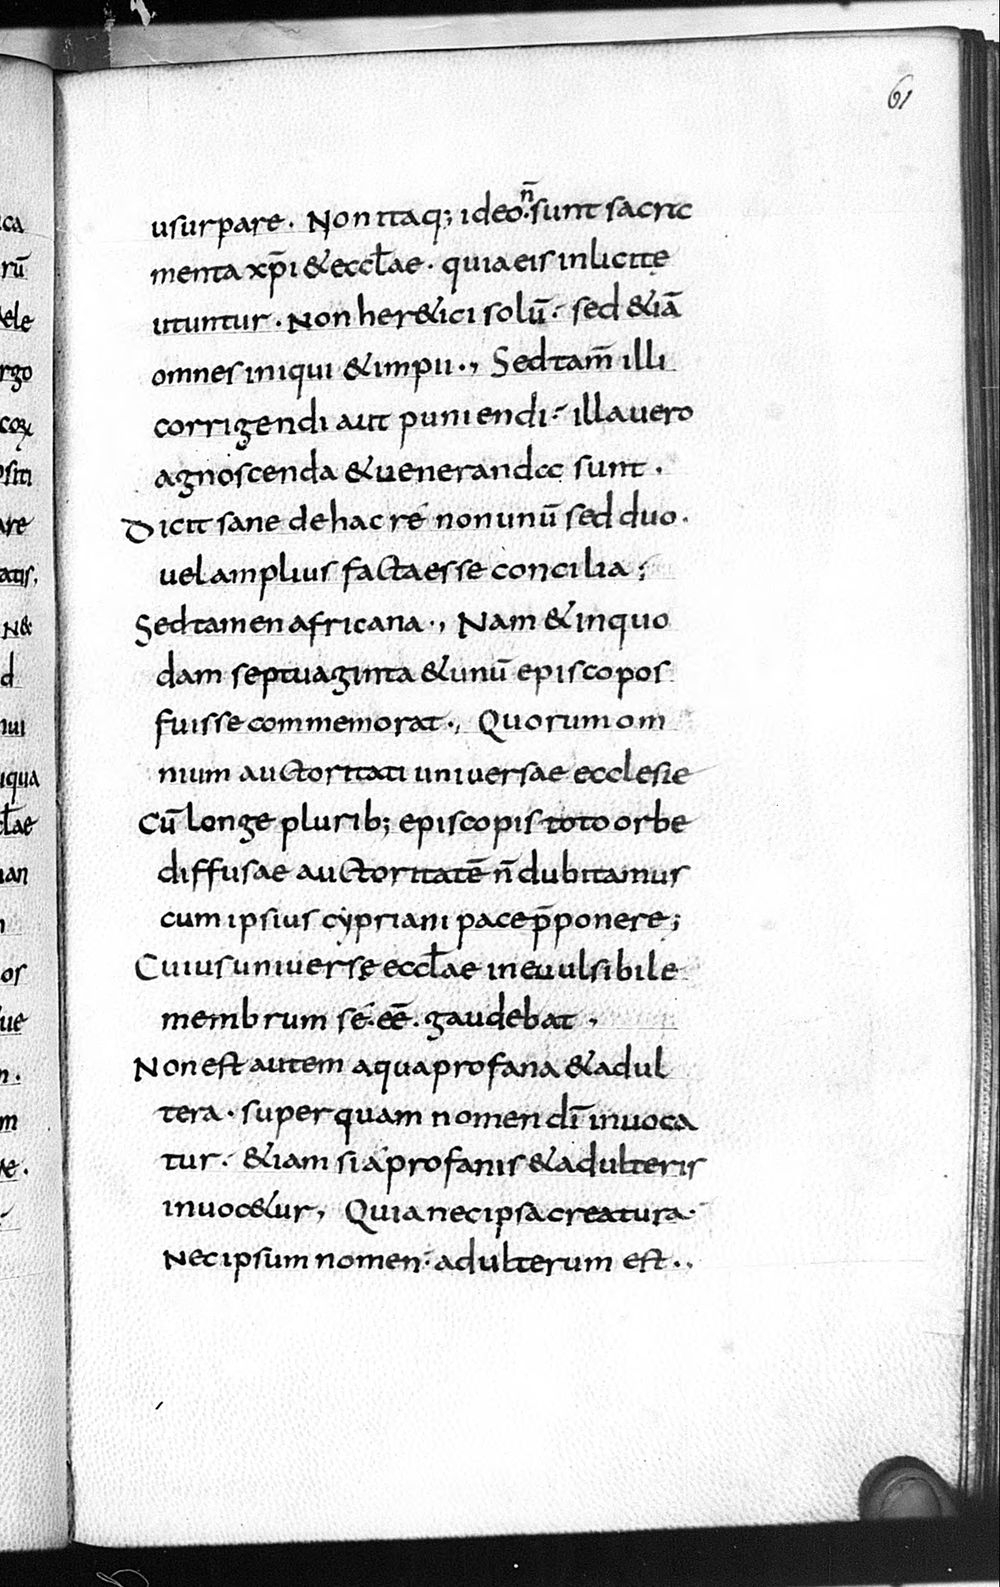 61
usurpare. Non itaq; ideo n̄ sunt sacrac
menta xp̄i & eccl̄ae. quia eis inlicite
utuntur. Non her&ici solū. sed &iā
omnes iniqui & impii., Sed tam̄ illi
corrigendi aut puniendi. illa uero
agnoscenda & ueneranda sunt.
Dicit sane de hac re non unū sed duo.
uel amplius facta esse concilia;
Sed tamen africana., Nam & in quo
dam septuaginta & unū episcopos
fuisse commemorat., Quorum om
nium auctoritati uniuersae ecclesie
Cū longe plurib; episcopis toto orbe
diffusae auctoritatē n̄ dubitamus
cum ipsius cypriani pace p̄ponere;
Cuius uniuerse eccl̄ae ineuulsibile
membrum se. eē. gaudebat,
Non est autem aqua profana & adul
tera. super quam nomen dī inuoca
tur. &iam si a profanis & adulteris
inuoc&ur, Quia nec ipsa creatura.
Nec ipsum nomen. adulterum est..
ca
rū
ele
rgo
siti
are
atis,
N&
d
nui
iqua
cl̄ae
nan
os
ue
n.
m